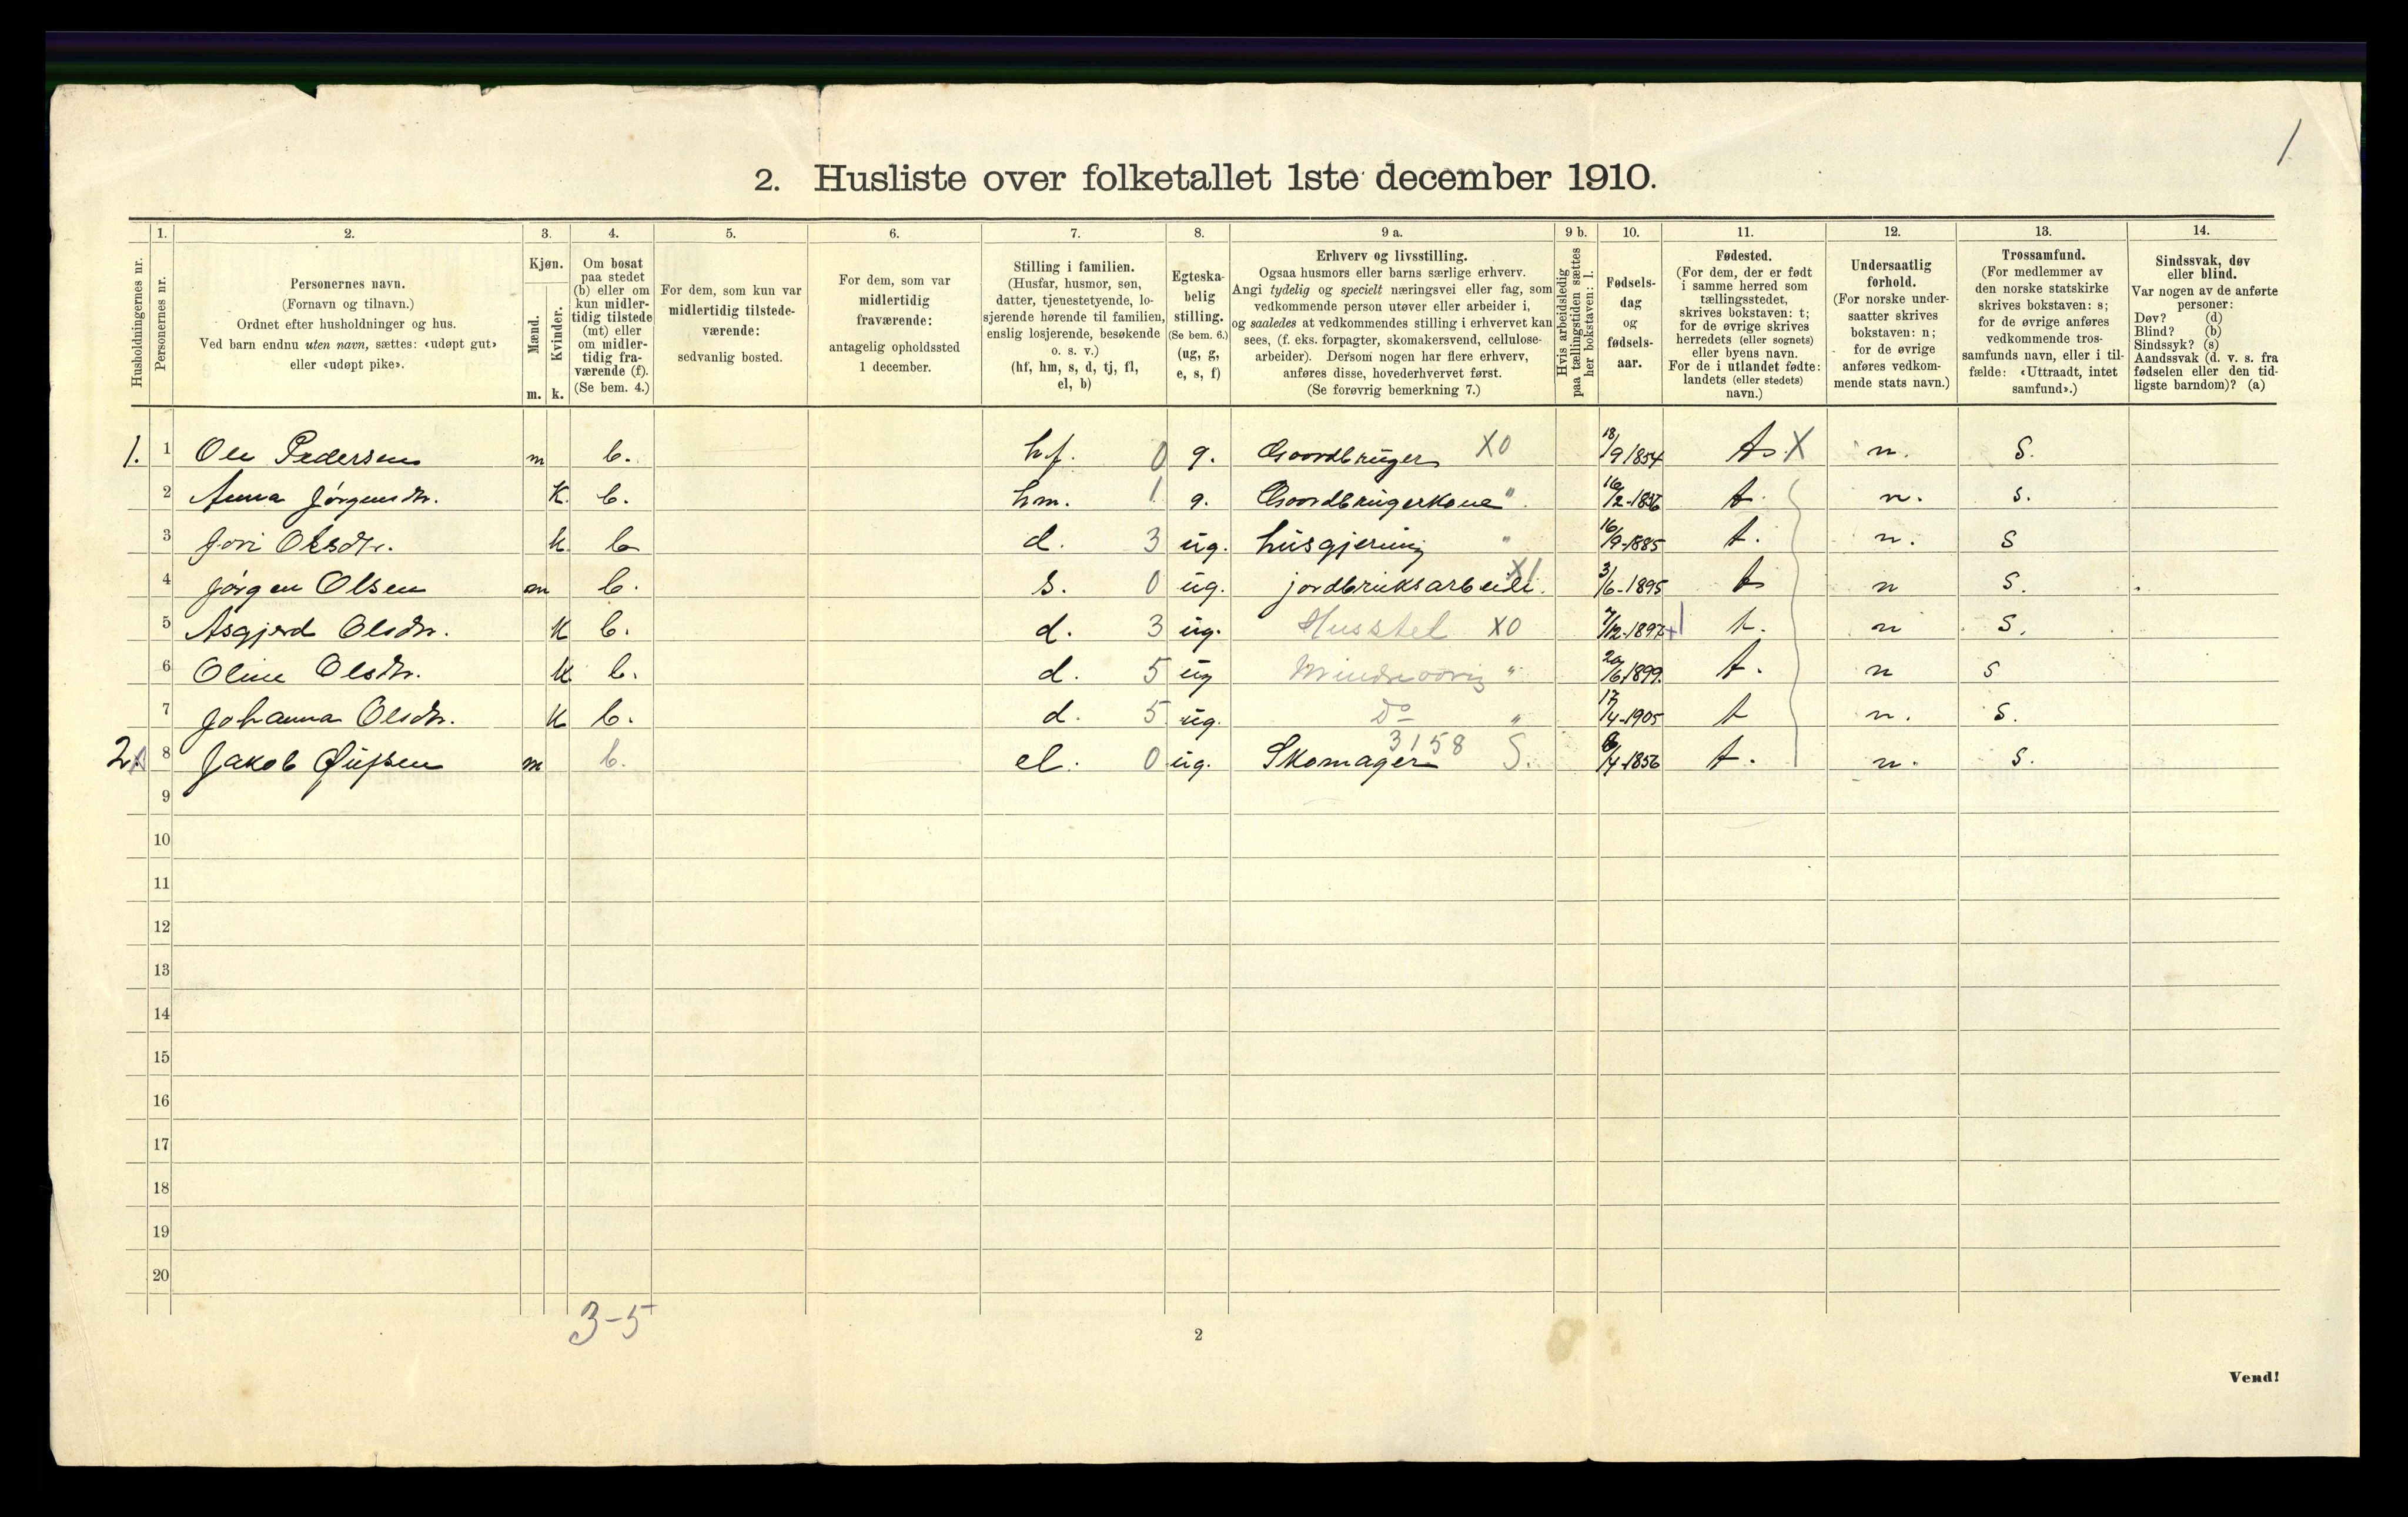 1
2. Husliste over folketallet 1ste december 1910.
1. 2. 3. 4. 5. 6. 7. 8. 9 a. 9 b. 10. 11. 12. 13. 14.
Husholdningernes nr.
Personernes nr.
Personernes navn.
(Fornavn og tilnavn.)
Ordnet efter husholdninger og hus.
Ved barn endnu uten navn, sættes: «udøpt gut»
eller «udøpt pike».
Kjøn.
Mænd.
Kvinder.
m. k.
Om bosat
paa stedet
(b) eller om
kun midler-
tidig tilstede
(mt) eller
om midler-
tidig fra-
værende (f).
(Se bem. 4.)
For dem, som kun var
midlertidig tilstede-
værende:
sedvanlig bosted.
For dem, som var
midlertidig
fraværende:
antagelig opholdssted
1 december.
Stilling i familien.
(Husfar, husmor, søn,
datter, tjenestetyende, lo-
sjerende hørende til familien,
enslig losjerende, besøkende
o. s. v.)
(hf, hm, s, d, tj, fl,
el, b)
Egteska-
belig
stilling.
(Se bem. 6.)
(ug, g,
e, s, f)
Erhverv og livsstilling.
Ogsaa husmors eller barns særlige erhverv.
Angi tydelig og specielt næringsvei eller fag, som
vedkommende person utøver eller arbeider i,
og saaledes at vedkommendes stilling i erhvervet kan
sees, (f. eks. forpagter, skomakersvend, cellulose-
arbeider). Dersom nogen har flere erhverv,
anføres disse, hovederhvervet først.
(Se forøvrig bemerkning 7.)
Hvis arbeidsledig
paa tællingstiden sættes
her bokstaven: l.
Fødsels-
dag
og
fødsels-
aar.
Fødested.
(For dem, der er født
i samme herred som
tællingsstedet,
skrives bokstaven: t;
for de øvrige skrives
herredets (eller sognets)
eller byens navn.
For de i utlandet fødte:
landets (eller stedets)
navn.)
Undersaatlig
forhold.
(For norske under-
saatter skrives
bokstaven: n;
for de øvrige
anføres vedkom-
mende stats navn.)
Trossamfund.
(For medlemmer av
den norske statskirke
skrives bokstaven: s;
for de øvrige anføres
vedkommende tros-
samfunds navn, eller i til-
fælde: «Uttraadt, intet
samfund».)
Sindssvak, døv
eller blind.
Var nogen av de anførte
personer:
Døv? (d)
Blind? (b)
Sindssyk? (s)
Aandssvak (d. v. s. fra
fødselen eller den tid-
ligste barndom)? (a)
1. 1 Ole Pedersen m b. hf. 0 g. Gaardbruger X0 18/9 1854 X n. S.
2 Anna Jörgensdtr. K. b. hm. 1 g. Gaardbrugerkone " t. n. s.
3 Jori Olsdtr. k b d. 3 ug. husgjerning " 16/9-1885 t. n. S
4 Jörgen Olsen m b. s. 0 ug. jordbruksarbeide. X1 3/6-1895 t n S.
5 Asgjerd Olsdtr. K b. d. 3 ug. Husstel X0 7/12-1897 t. n S.
6 Oline Olsdtr. K b. d. 5 ug Mindreaarig " 20/6 1899. t. n s
7 Johanna Olsdtr. K b. d. 5 ug. Do " 17/4-1905 t n. s.
2. 8 Jakob m b. el. 0 ug. Skomager 3158 S. 1856 t. n. s.
9
10
11
12
13
14
15
16
17
18
19
20
3-5
2
Vend!